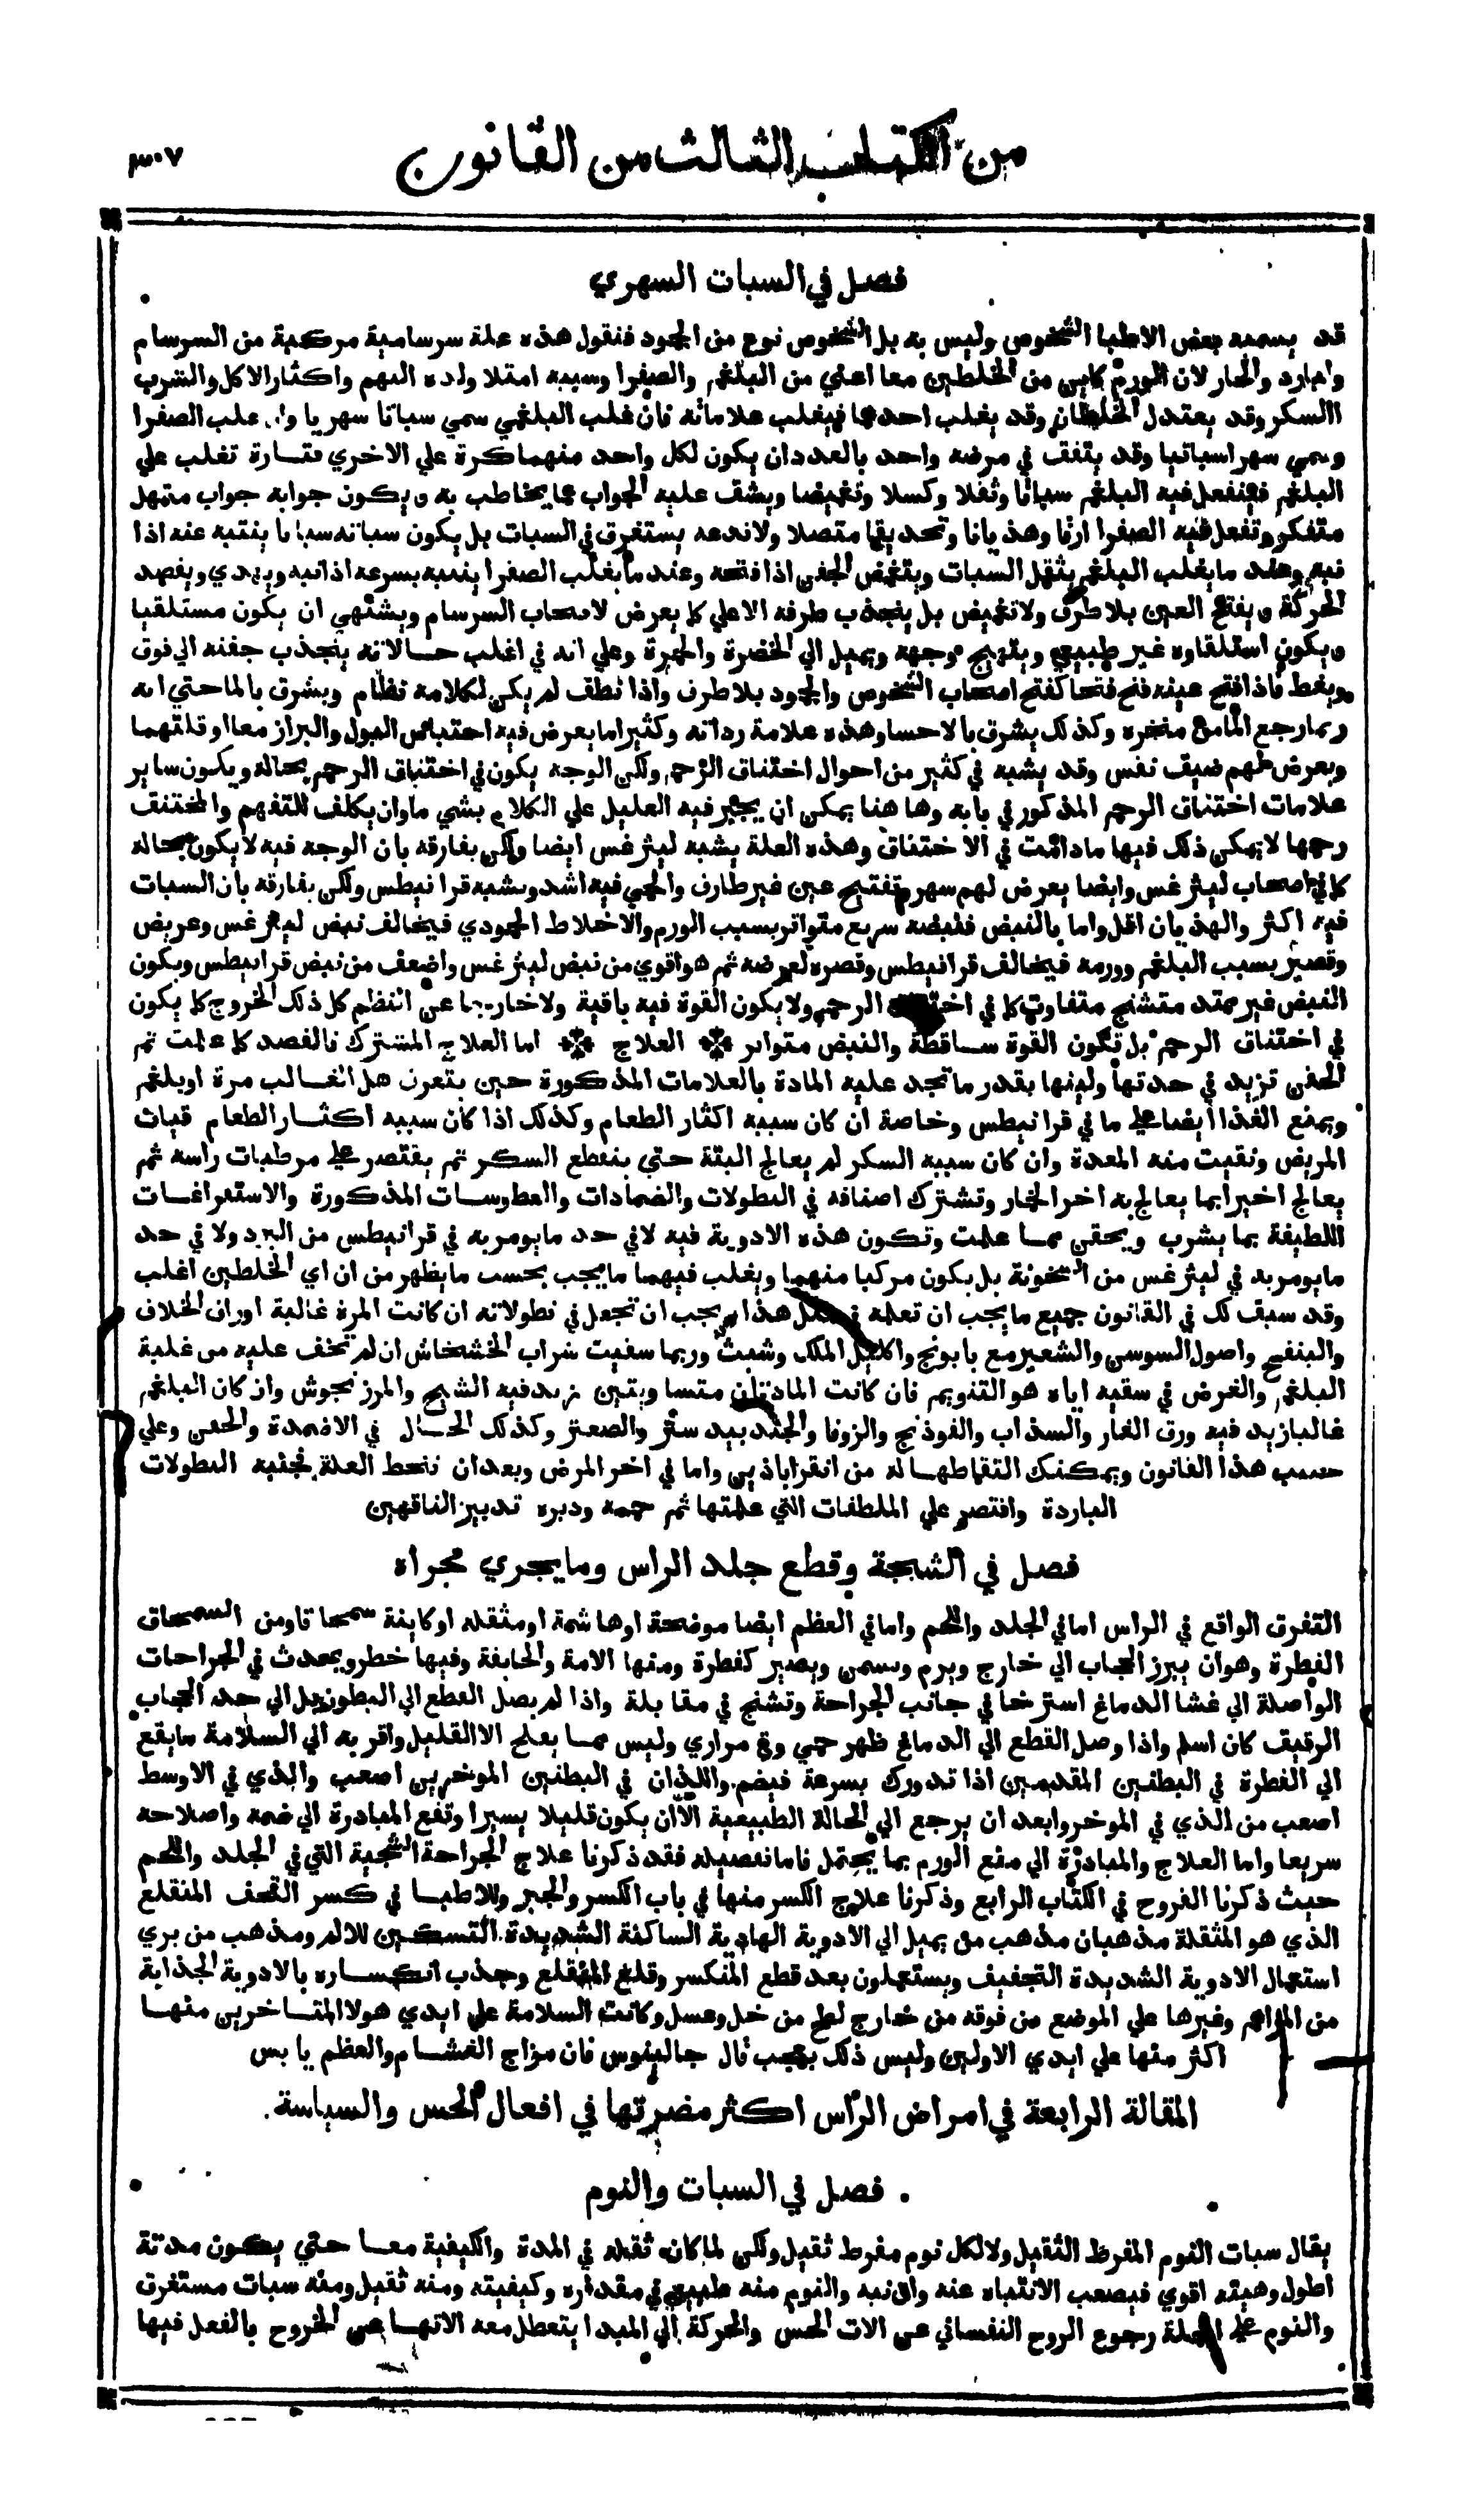 من الكتاب الثالث من القانون
٣٠٧
فصل في السبات السهري
قد يسميه بعض الاطبا الشخوص وليس به بل الشخوص نوع من الجمود فنقول هذه علة سرسامية مركبة من السرسام
والبارد والحار لان الورم كاين من الخلطين معا اعني من البلغم والصفرا وسببه امتلا ولده النهم واكثار الاكل والشرب
االسكر وقد يعتدل الخلطان وقد يغلب احدهما فيغلب علاماته فان غلب البلغمي سمي سباتا سهريا وان غلب الصفرا
وسمي سهرا سباتيا وقد يتفق في مرضه واحد بالعدد ان يكون لكل واحد منهما كرة علي الاخري فتارة تغلب علي
البلغم فينفعل فيه البلغم سباتا وثقلا وكسلا وتغميضا ويشق عليه الجواب لما يخاطب به ويكون جوابه جواب متمهل
متفكر وتفعل فيه الصفرا ارقا وهذيانا وتحديقا متصلا ولا تدعه يستغرق في السبات بل يكون سباته سباتا ينتبه عنه اذا
نبه وعند ما يغلب البلغم يثقل السبات ويتغمض الجفن اذا فتحه وعند ما يغلب الصفرا ينتبه بسرعه اذا نبه ويهدي ويقصد
الحركة ويفتح العين بلا طرف ولا تغميض بل ينجذب طرفه الاعلي كما يعرض لاصحاب السرسام ويشتهي ان يكون مستلقيا
ويكون استلقاوه غير طبيعي ويتهيج وجهه ويميل الي الخضرة والحمرة وعلي انه في اغلب حالاته ينجذب جفنه الي فوق
ويغط فاذا فتح عينه فتح فتحا كفتح اصحاب الشخوص والجمود بلا طرف واذا نطق لم يكن لكلامه نظام ويشرق بالما حتي انه
ربما رجع الما من منخره وكذلك يشرق بالاحسا وهذه علامة رداته وكثيرا ما يعرض فيه احتباس البول والبراز معا او قلتهما
ويعرض لهم ضيق نفس وقد يشبه في كثير من احوال اختناق الرحم ولكن الوجه يكون في اختناق الرحم بحاله ويكون ساير
علامات اختناق الرحم المذكور في بابه وهاهنا يمكن ان يجبر فيه العليل علي الكلام بشي ما وان يكلف للتفهم والمختنق
رحمها لا يمكن ذلك فيها ما دامت في الاختناق وهذه العلة يشبه ليثرغس ايضا ولكن يفارقه بان الوجه فيه لا يكون بحاله
كما في اصحاب ليثرغس وايضا يعرض لهم سهر وتفتيح عين غير طارف والحمي فيه اشد ويشبه قرانيطس ولكن يفارقه بان السبات
فيه اكثر والهذيان اقل واما بالنبض فنبضه سريع متواتر بسبب الورم والاخلاط الجمودي فيخالف نبض ليثرغس وعريض
وقصير بسبب البلغم وورمه فيخالف قرانيطس وقصره لعرضه ثم هو اقوي من نبض ليثرغس واضعف من نبض قرانيطس ويكون
النبض غير ممتد متشنج متفاوت كما في اختناق الرحم ولا يكون القوة فيه باقية ولا خارجها عن انتظم كل ذلك الخروج كما يكون
في اختناق الرحم بل تكون القوة ساقطة والنبض متواتر العلاج اما العلاج المشترك فالفصد كما علمت ثم
الحقن تزيد في حدتها ولينها بقدر ما تجد عليه المادة بالعلامات المذكورة حين يتعرف هل الغالب مرة او بلغم
ويمنع الغذا ايضا علي ما في قرانيطس وخاصة ان كان سببه اكثار الطعام وكذلك اذا كان سببه اكثار الطعام قيات
المريض ونقيت منه المعدة وان كان سببه السكر لم يعالج البتة حتي ينقطع السكر ثم يقتصر علي مرطبات راسه ثم
يعالج اخيرا بما يعالج به اخر الخمار وتشترك اصنافه في النطولات والضمادات والعطوسات المذكورة والاستفراغات
اللطيفة بما يشرب ويحقن مما علمت وتكون هذه الادوية فيه لا في حد ما يومر به في قرانيطس من البرد ولا في حد
ما يومر به في ليثرغس من السخونة بل يكون مركبا منهما ويغلب فيهما ما يجب بحسب ما يظهر من ان اي الخلطين اغلب
وقد سبق لك في القانون جميع ما يجب ان تعلمه في مثل هذا ويجب ان تجعل في نطولاته ان كانت المرة غالبة اوراق الخلاف
والبنفسج واصول السوسن والشعير مع بابونج واكليل الملك وشبث وربما سقيت شراب الخشخاش ان لم تخف عليه من غلبة
البلغم والغرض في سقيه اياه هو التنويم فان كانت المادتان متساويتين زيد فيه الشيح والمرزنجوش وان كان البلغم
غالبا زيد فيه ورق الغار والسذاب والفوذنج والزوفا والجندبيدستر والصعتر وكذلك الحال في الاضمدة والحقن وعلي
حسب هذا القانون ويمكنك التقاطها له من انقراباذين واما في اخر المرض وبعد ان تنحط العلة فجنبه النطولات
الباردة واقتصر علي الملطفات التي علمتها ثم حمه ودبره تدبير الناقهين
فصل في الشجة وقطع جلد الراس وما يجري مجراه
التفرق الواقع في الراس اما في الجلد واللحم واما في العظم ايضا موضحة او هاشمة او مثقلة او كاينة سمحاقا ومن السمحاق
الفطرة وهو ان يبرز الحجاب الي خارج ويرم ويسمن ويصير كفطرة ومنها الامة والجايفة وفيها خطر ويحدث في الجراحات
الواصلة الي غشا الدماغ استرخا في جانب الجراحة وتشنج في مقابلة واذا لم يصل القطع الي البطون بل الي حد الحجاب
الرقيق كان اسلم واذا وصل القطع الي الدماغ ظهر حمي وقي مراري وليس مما يفلح الا القليل واقربه الي السلامة ما يقع
الي الفطرة في البطنين المقدمين اذا تدورك بسرعة فيضم واللذان في البطنين الموخرين اصعب والذي في الاوسط
اصعب من الذي في الموخر وابعد ان يرجع الي الحالة الطبيعية الا ان يكون قليلا يسيرا وتقع المبادرة الي ضمه واصلاحه
سريعا واما العلاج والمبادرة الي منع الورم بما يحتمل فاما تفصيله فقد ذكرنا علاج الجراحة الشجية التي في الجلد واللحم
حيث ذكرنا القروح في الكتاب الرابع وذكرنا علاج الكسر منها في باب الكسر والجبر وللاطبا في كسر القحف المنقلع
الذي هو المثقلة مذهبان مذهب من يميل الي الادوية الهادية الساكنة الشديدة التسكين للالم ومذهب من يري
استعمال الادوية الشديدة التجفيف ويستعملون بعد قطع المنكسر وقلع المنقلع وجذب انكساره بالادوية الجذابة
من المراهم وغيرها علي الموضع من فوقه من خارج لطخ من خل وعسل وكانت السلامة علي ايدي هولا المتاخرين منها
اكثر منها علي ايدي الاولين وليس ذلك بعجب قال جالينوس فان مزاج الغشا والعظم يابس
المقالة الرابعة في امراض الراس اكثر مضرتها في افعال الحس والسياسة
فصل في السبات والنوم
يقال سبات النوم المفرط الثقيل ولا لكل نوم مفرط ثقيل ولكن لما كان ثقله في المدة والكيفية معا حتي يكون مدته
اطول وهيته اقوي فيصعب الانتباه عنه وان نبه والنوم منه طبيعي في مقداره وكيفيته ومنه ثقيل ومنه سبات مستغرق
والنوم علي الجملة رجوع الروح النفساني عن الات الحس والحركة الي المبدا يتعطل معه الاتها عن الخروج بالفعل فيها